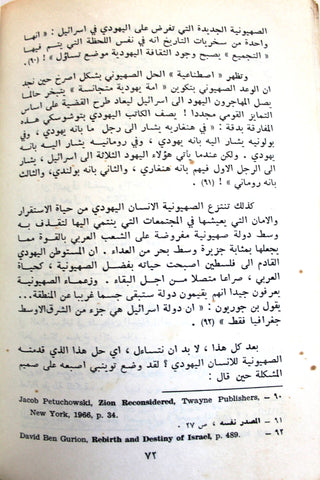 الصهيونية الجديدة التي تفرض على اليهودي في اسرائيل : « انها
واحدة من سخريات التاريخ انه في نفس اللحظة التي يتم فيها
« التجميع » يصبح وجود الثقافة اليهودية موضع تساؤل » ! (٩٠) .
وتظهر « اصطناعية » الحل الصهيوني بشكل اصرخ حين نجد
ان الوعد الصهيوني بتكوين « امة يهودية متجانسة » يتبخر حالما
يصل المهاجرون اليهود الى اسرائيل ليعاد طرح القضية على اساس
التمايز القومي مجددا ! يصف الكاتب اليهودي بتوشوسكي هذه
المفارقة بدقة : « في هنغاريه يشار الى رجل ما بانه يهودي ، وفي
بولونيه يشار اليه بانه يهودي ، وفي رومانييه يشار اليه بانه
يهودي . ولكن عندما يأتي هؤلاء اليهود الثلاثة الى اسرائيل ، يشار
الى الرجل الاول فيهم بانه هنغاري ، والثاني بانه بولندي، والثالث
بانه روماني » ! (٩١) .
كذلك تنتزع الصهيونية الانسان اليهودي من حياة الاستقرار
والامان التي يعيشها في المجتمعات التي ينتمي اليها لتقذف به
وسط دولة صهيونية مفروضة على الشعب العربي بالقوة مما
يجعلها بمثابة جزيرة وسط بحر من العداء . ان المستوطن اليهودي
القادم الى فلسطين اصبحت حياته بفضل الصهيونية ، كحياة
العربي ، صراعا متصلا مــن اجل البقاء . وزعماء الصهيونية
يعرفون جيدا انهم يقيمون دولة ستبقى جسما غريبا عن المنطقة...
يقول بن جوريون : « ان دولة اسرائيل هي جزء من الشرق الاوسط
جغرافيا فقط » (٩٢) .
بعد كل هذا ، لا بد ان نتساءل ، اي حل هذا الذي قدمته
الصهيونية للانسان اليهودي ؟ لقد وضع تويتبي اصبعه على صميم
المشكلة حين قال :
٩٠ – Jacob Petuchowski, Zion Reconsidered, Twayne Publishers,
New York, 1966, p. 34.
٩١ – المصدر نفسه ، ص ٢٧ .
٩٢ – David Ben Gurion, Rebirth and Destiny of Israel, p. 489.
٧٢